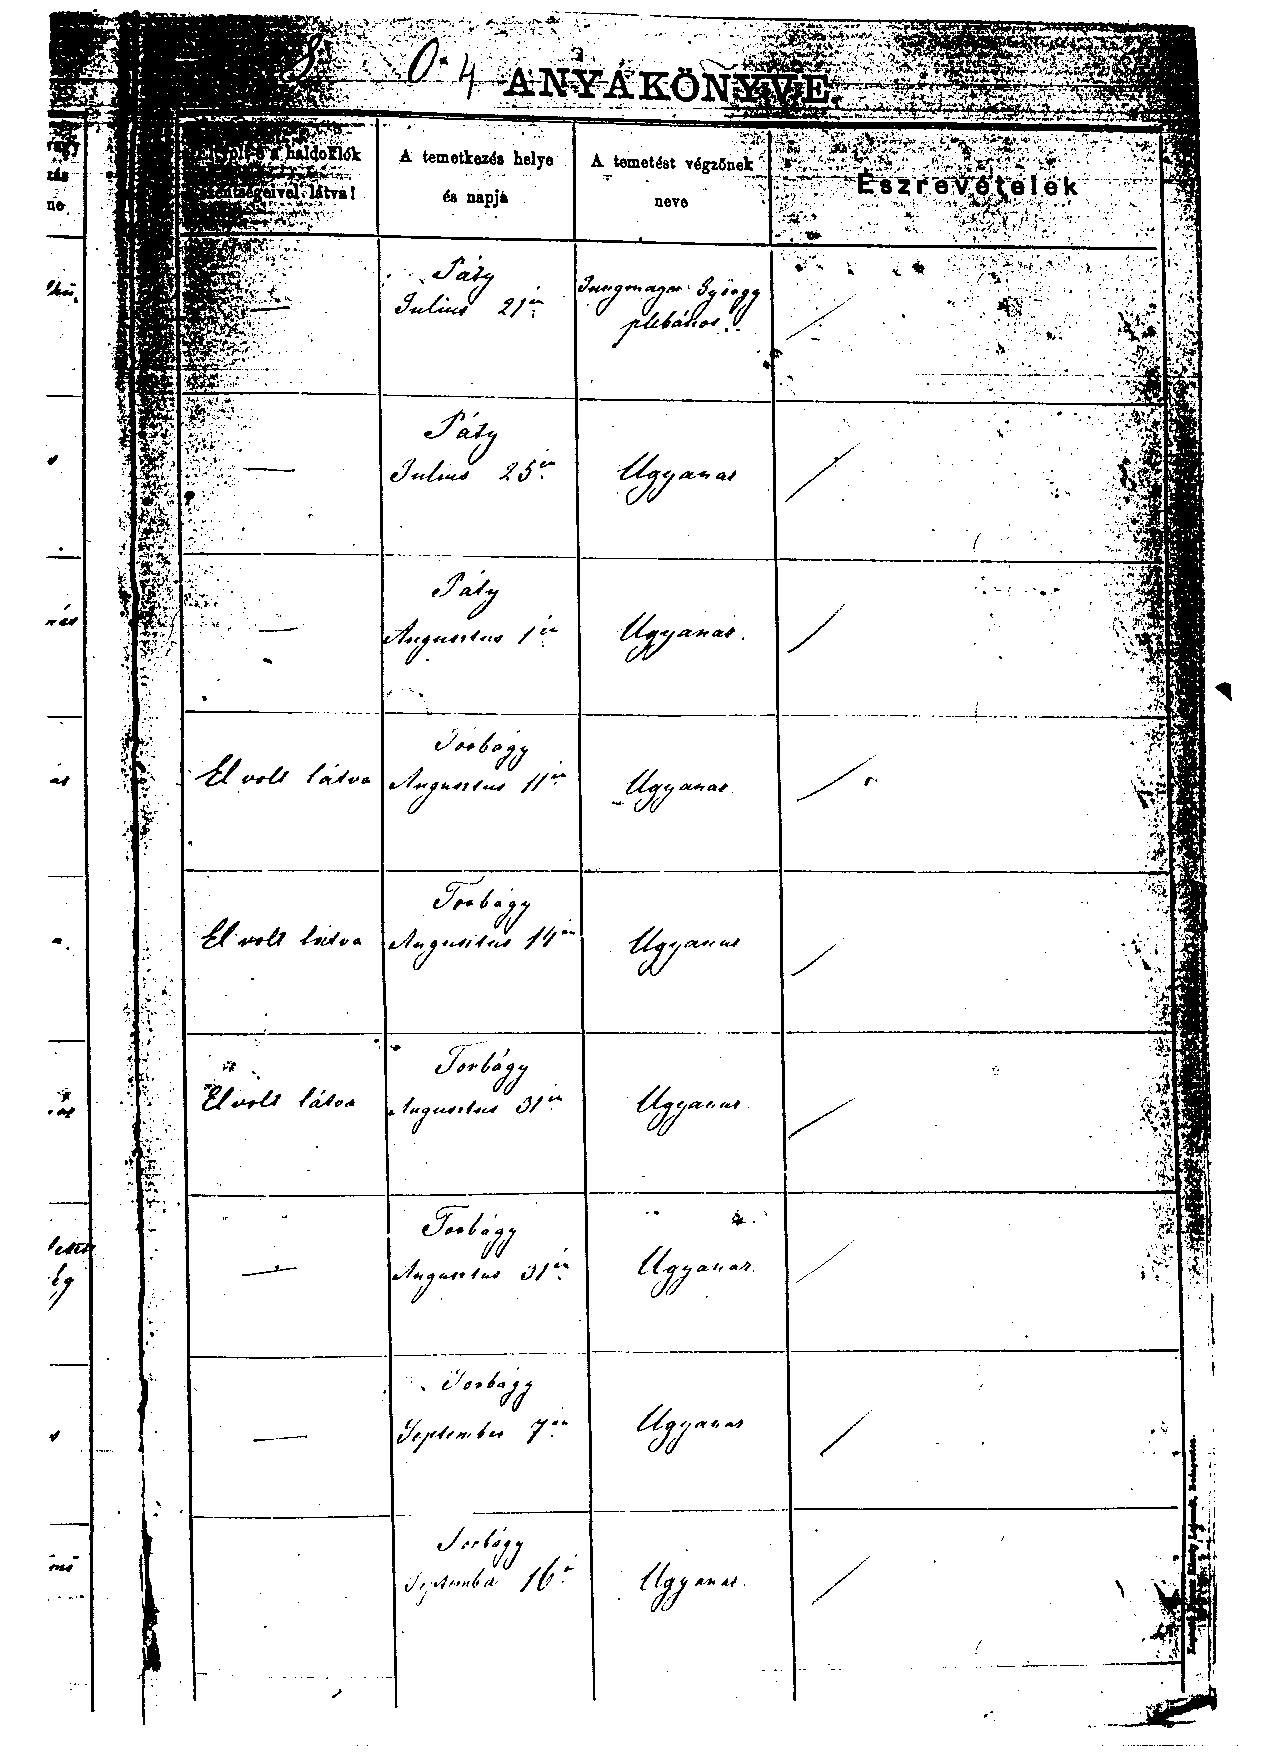 ANYAKÖNYVE.
a haldoklók
szentségeivel látva?
A temetkezés helye
és napja
A temetést végzőnek
neve
Észrevételek
Páty
Julius 21én
György
plébános
/
—
Páty
Julius 25én
Ugyanaz
/
—
Páty
Augusztus 1én
Ugyanaz.
/
El volt látva
Torbágy
Augusztus 11én
Ugyanaz
/
El volt látva
Torbágy
Augusztus 14én
Ugyanaz
/
El volt látva
Torbágy
Augusztus 31én
Ugyanaz
/
—
Torbágy
Augusztus 31én
Ugyanaz.
/
—
Torbágy
September 7én
Ugyanaz
/
Torbágy
September 16n
Ugyanaz.
/